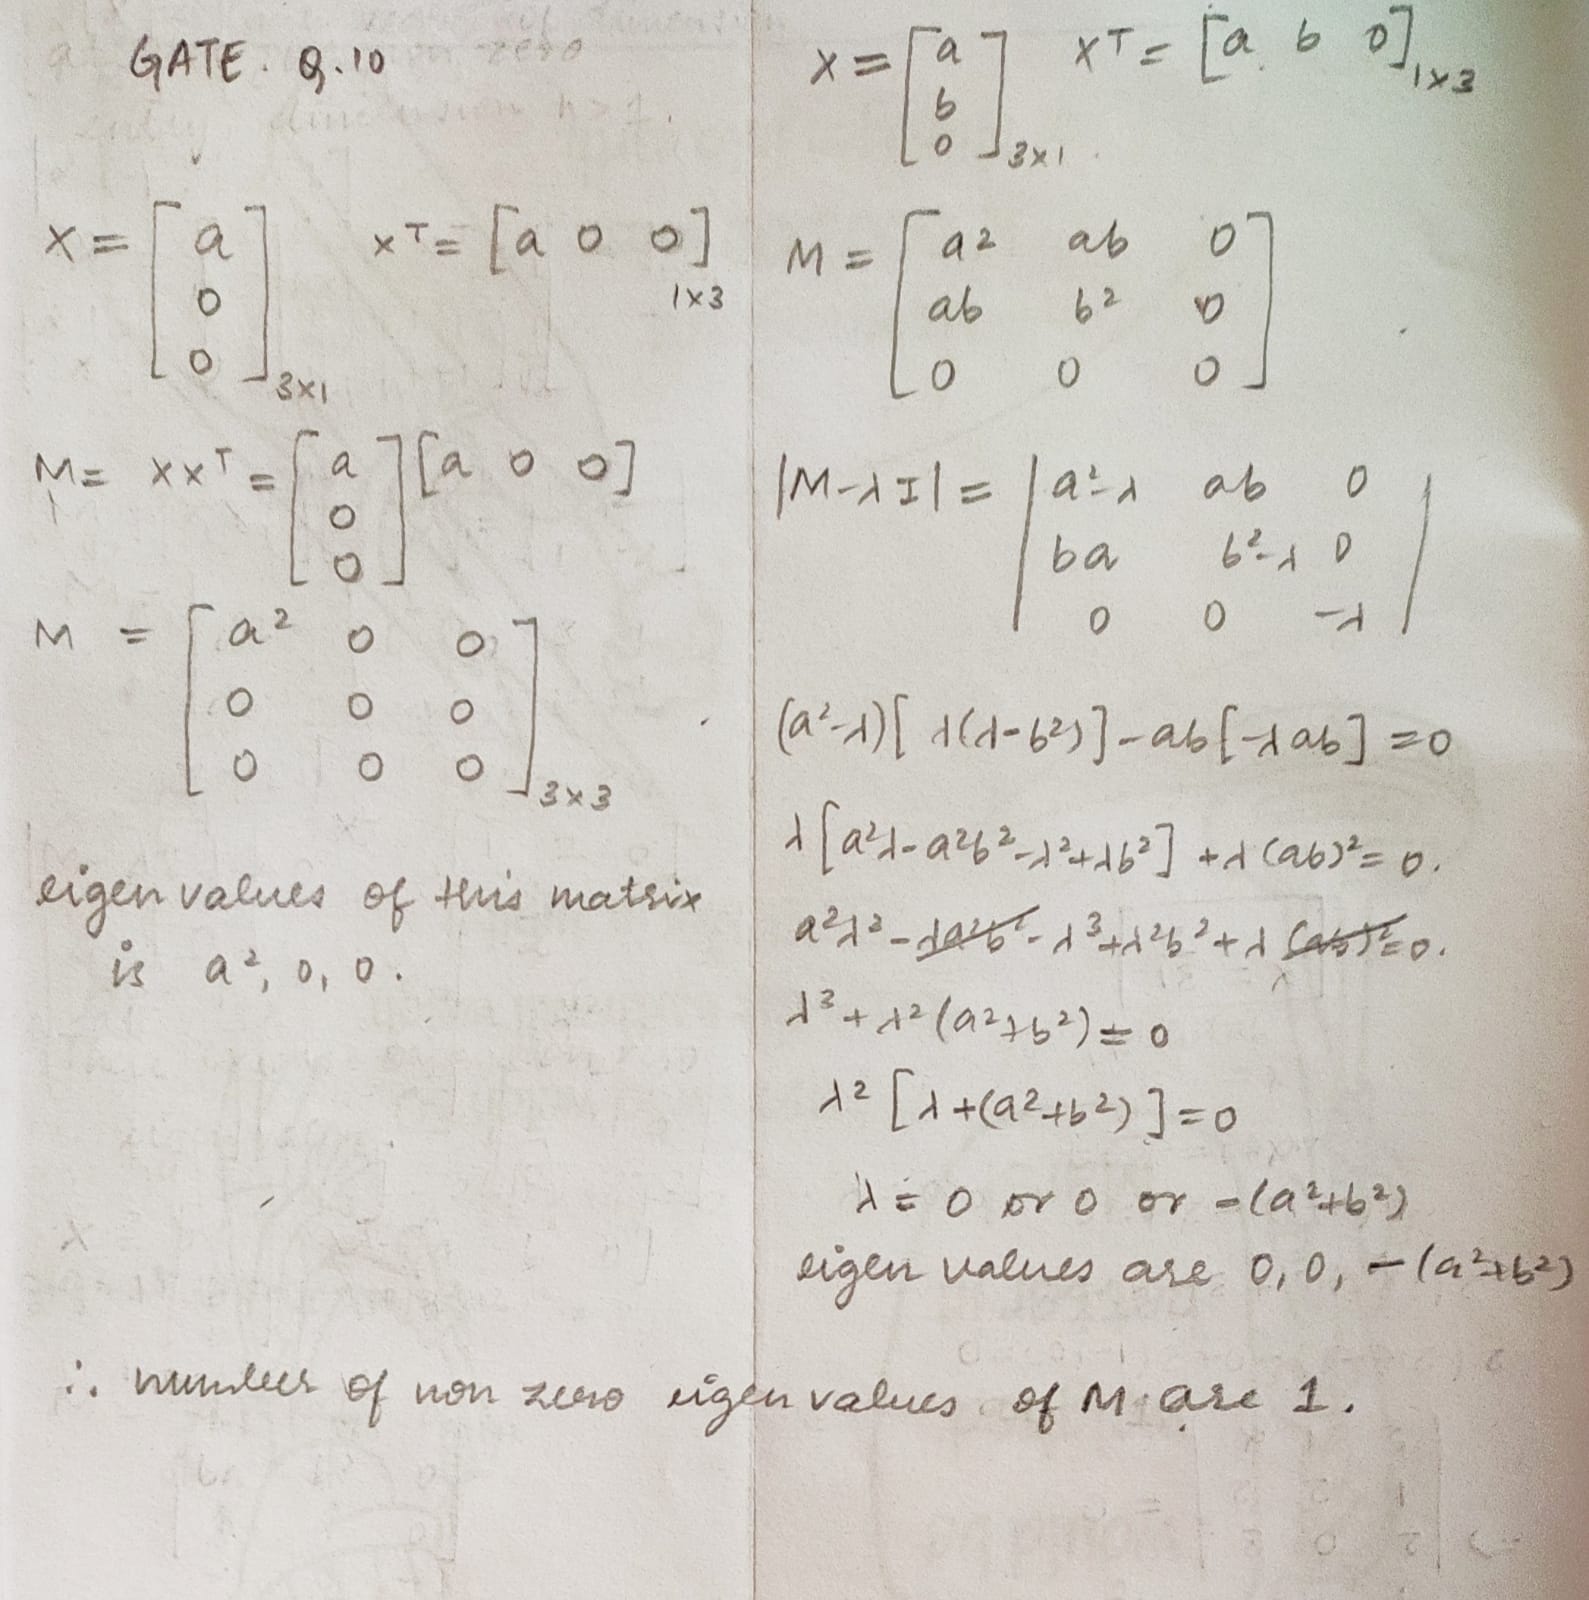 GATE. Q.10
X = [a 0 0]3×1   x^T = [a 0 0]1×3
M = XX^T = [a 0 0] [a 0 0]
M = [a² 0 0
0 0 0
0 0 0]3×3
eigen values of this matrix
is a², 0, 0.
X = [a b 0]3×1   X^T = [a b 0]1×3
M = [a² ab 0
ab b² 0
0 0 0]
|M-λI| = |a²-λ ab 0
ba b²-λ 0
0 0 -λ|
(a²-λ)[λ(λ-b²)] - ab[-λab] = 0
λ[a²λ - a²b² - λ² + λb²] + λ(ab)² = 0.
a²λ² - λa²b² - λ³ + λ²b² + λ(ab)² = 0.
λ³ + λ²(a²+b²) = 0
λ²[λ + (a²+b²)] = 0
λ = 0 or 0 or -(a²+b²)
eigen values are 0, 0, -(a²+b²)
∴ number of non zero eigen values of M are 1.